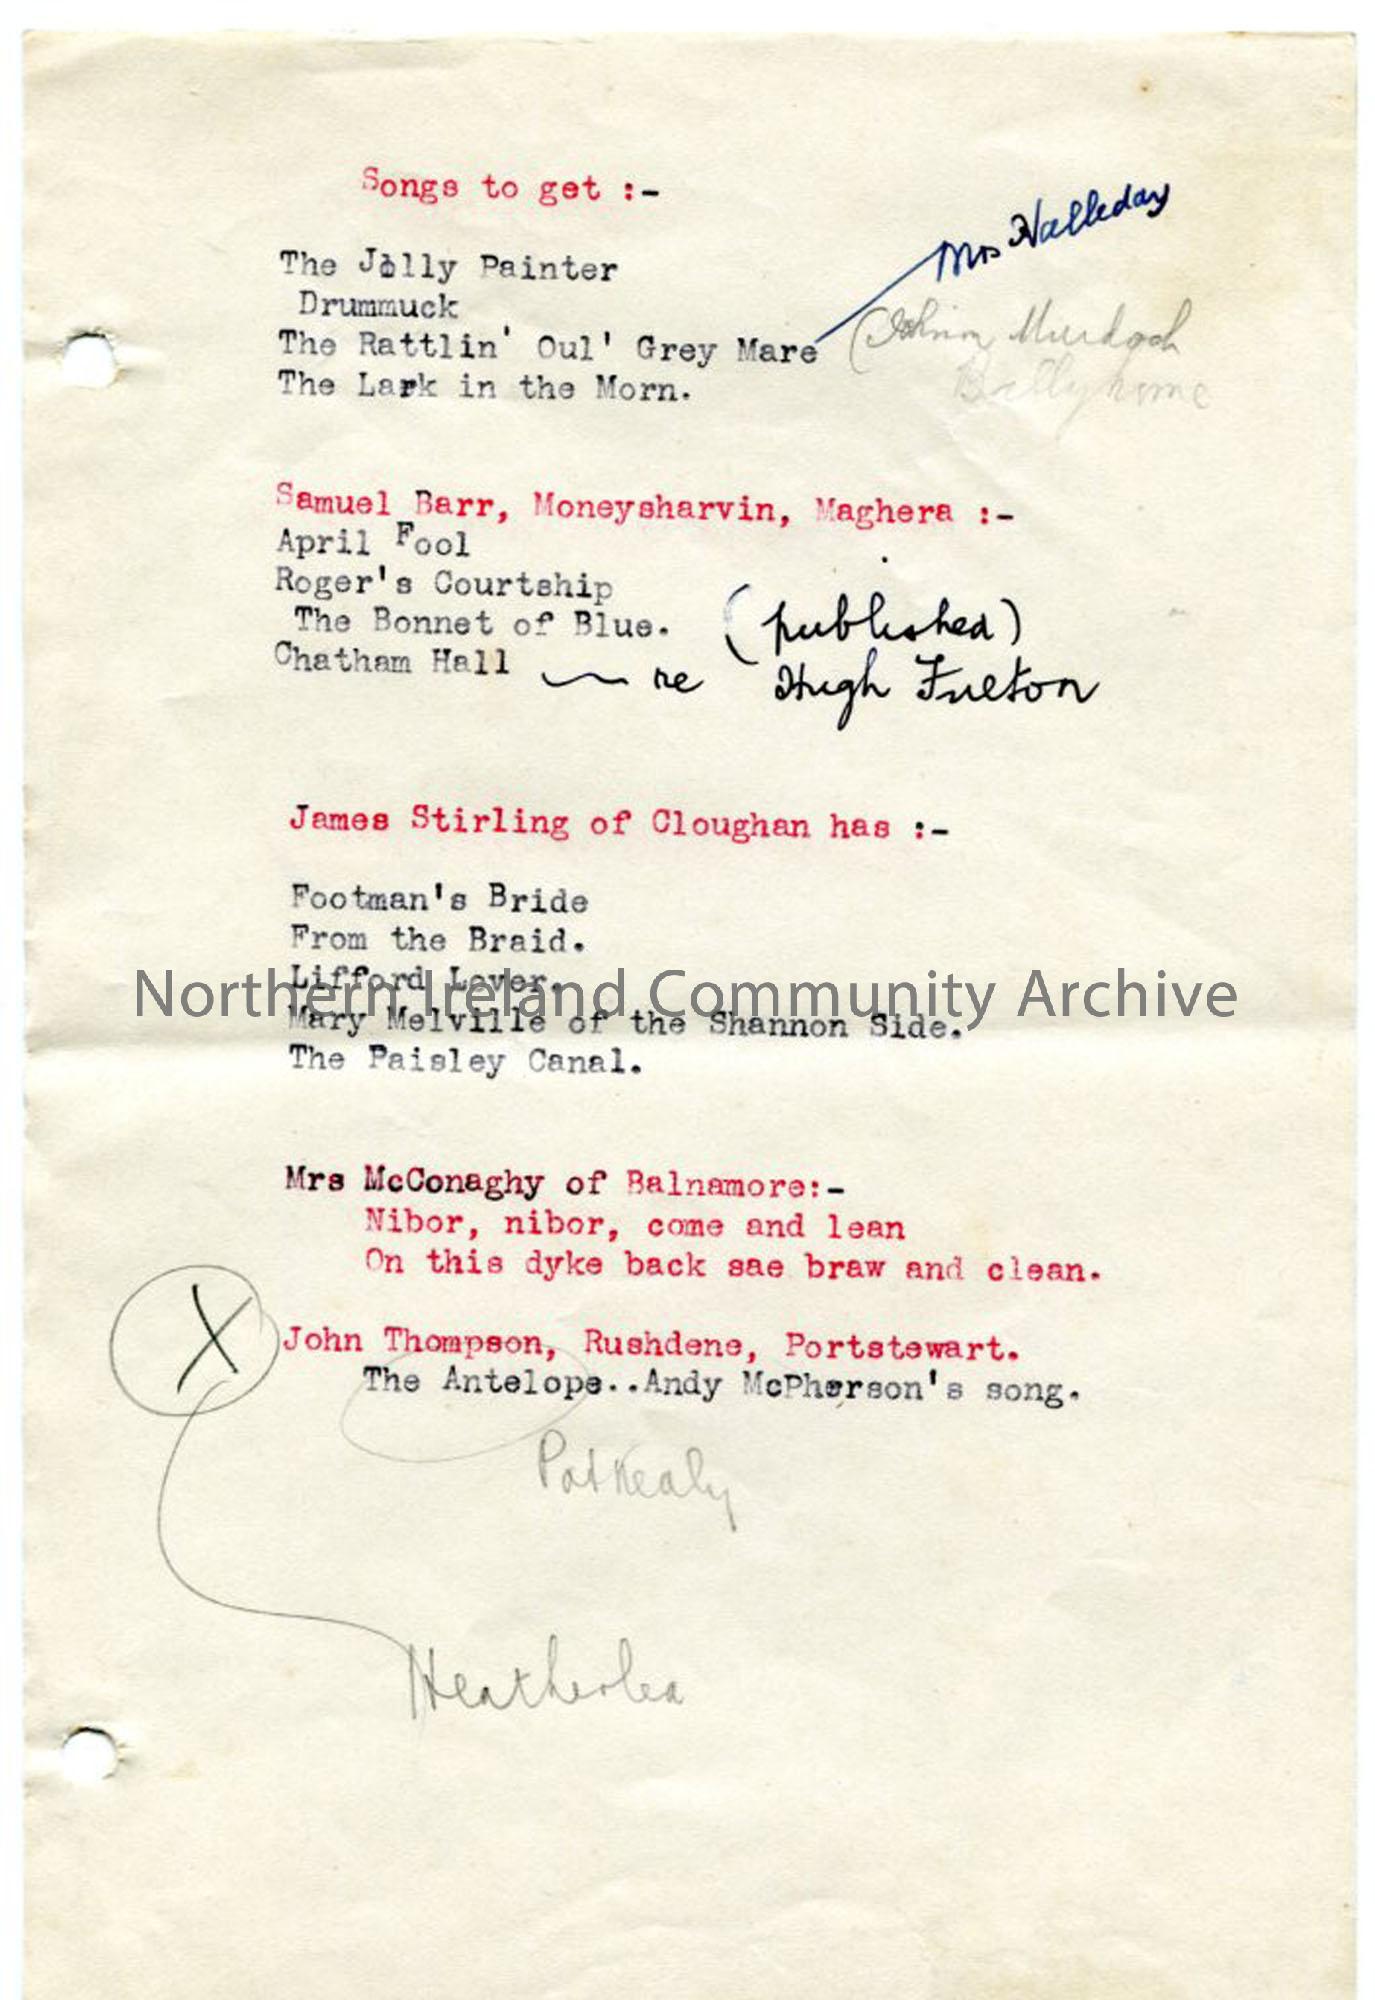 Songs to get :-
Mrs Halleday
The Jolly Painter
Drummuck
The Rattlin' Oul' Grey Mare
Murdoch
The Lark in the Morn.
Samuel Barr, Moneysharvin, Maghera :-
April Fool
Roger's Courtship
The Bonnet of Blue. (published)
Chatham Hall re Hugh Fulton
James Stirling of Cloughan has :-
Footman's Bride
From the Braid.
Lifford Lover.
Northern Ireland Community Archive
Mary Melville of the Shannon Side.
The Paisley Canal.
Mrs McConaghy of Balnamore:-
Nibor, nibor, come and lean
On this dyke back sae braw and clean.
X John Thompson, Rushdene, Portstewart.
The Antelope..Andy McPherson's song.
Pat Kealy
Heatherlea